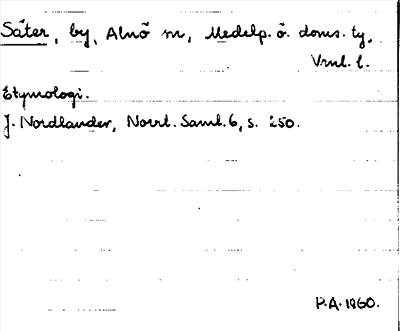 Säter, by, Alnö sn, Medelp. ö. doms. tg,
Vrnl. l.
Etymologi.
J. Nordlander, Norrl. Saml. 6, s. 250.
P.A. 1960.